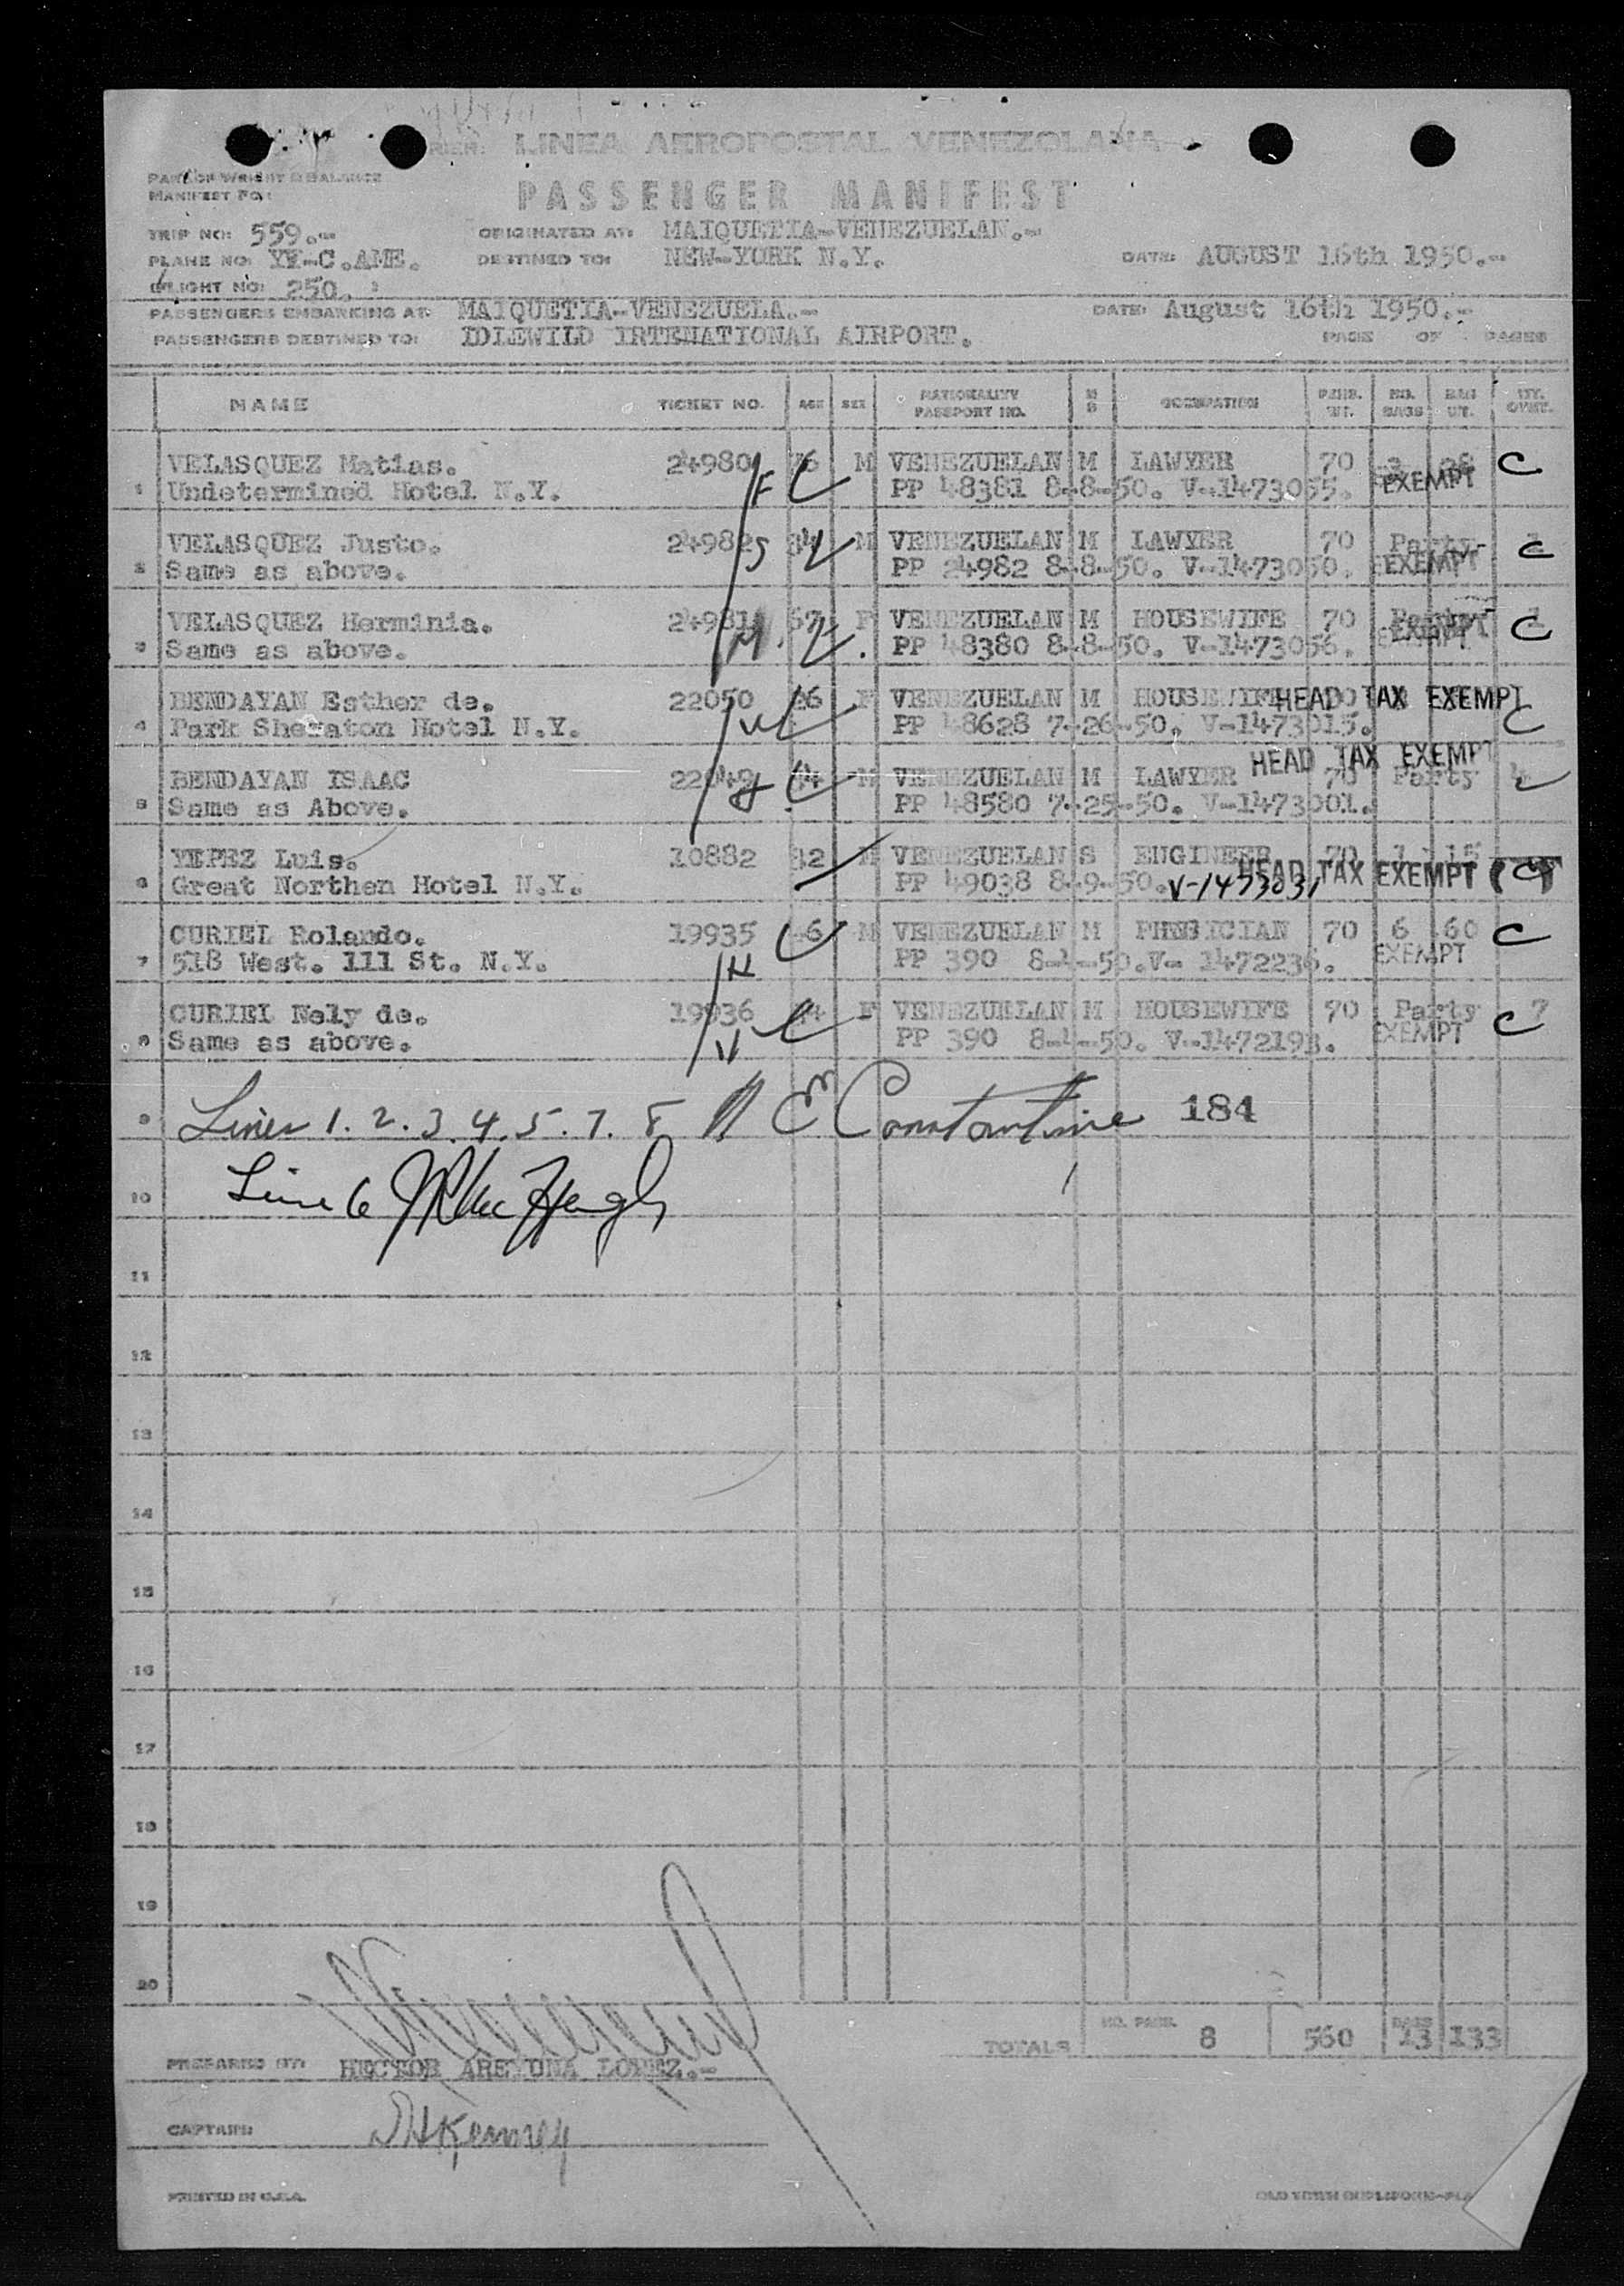 LINEA AEROPOSTAL VENEZOLANA
PASSENGER MANIFEST
MANIFEST FO:
TRIP NO: 559.- ORIGINATED AT: MAIQUETIA-VENEZUELAN.-
PLANE NO: YV-C.AME. DESTINED TO: NEW-YORK N.Y. DATE: AUGUST 16th 1950.-
FLIGHT NO: 250.
PASSENGERS EMBARKING AT: MAIQUETIA-VENEZUELA.- DATE: August 16th 1950.-
PASSENGERS DESTINED TO: IDLEWILD IRTENATIONAL AIRPORT. PAGE OF PAGES
NAME TICKET NO. AGE SEX NATIONALITY PASSPORT NO. M S OCCUPATION PSGR. WT. NO. BAGS BAG WT.
VELASQUEZ Matias. 24980 M VENEZUELAN M LAWYER 70 3 C
1 Undetermined Hotel N.Y. F PP 48381 8-8-50. V-1473055. EXEMPT
VELASQUEZ Justo. 24982 S 34 M VENEZUELAN M LAWYER 70 Party- C
2 Same as above. PP 24982 8-8-50. V-1473050. EXEMPT
VELASQUEZ Herminia. 24981 67 F VENEZUELAN M HOUSEWIFE 70 Party- C
3 Same as above. PP 48380 8-8-50. V-1473056. EXEMPT
BENDAYAN Esther de. 22050 26 F VENEZUELAN M HOUSEWIFE HEAD TAX EXEMPT
4 Park Sheraton Hotel N.Y. PP 48628 7-26-50. V-1473015. C
HEAD TAX EXEMPT
BENDAYAN ISAAC 22049 M VENEZUELAN M LAWYER 70 Party
5 Same as Above. PP 48580 7-25-50. V-1473001.
YEPEZ Luis. 10882 32 M VENEZUELAN S ENGINEER 70 1 15
6 Great Northen Hotel N.Y. PP 49038 8-9-50. V-1473031 HEAD TAX EXEMPT
CURIEL Rolando. 19935 46 M VENEZUELAN M PHYSICIAN 70 6 60 C
7 518 West. 111 St. N.Y. PP 390 8-4-50.V- 1472236. EXEMPT
CURIEL Nely de. 19936 F VENEZUELAN M HOUSEWIFE 70 Party C 7
8 Same as above. PP 390 8-4-50. V-1472193. EXEMPT
9 Lines 1. 2. 3. 4. 5. 7. 8 E Constantine 184
10 Line 6
11
12
13
14
15
16
17
18
19
20
TOTALS NO. PASS. 8 560 BAGS 13 133
PREPARED BY: HECTOR LOPEZ.-
CAPTAIN: Kenney
PRINTED IN U.S.A.